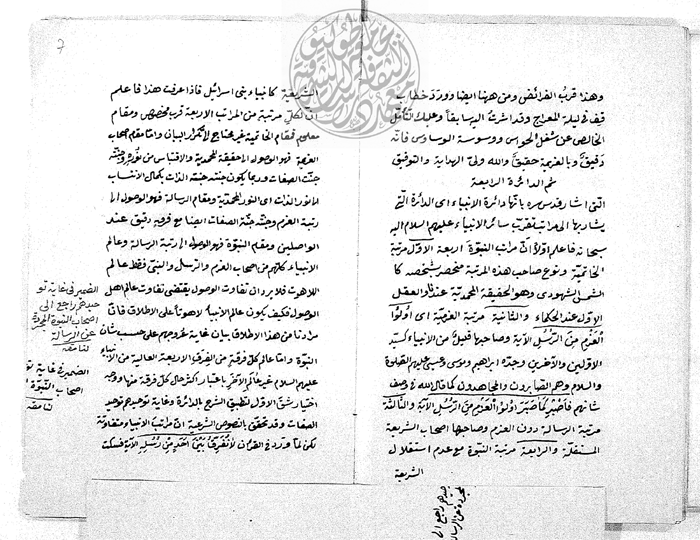 وهذا قرب الفرائض ومن ههنا ايضا ورد خطاب
قف في ليلة المعراج وقد اشرت اليها سابقا وعليك بالتأمل
الخالص عن شغل الحواس ووسوسة الوسواس فانه
دقيق وبالعزيمة حقيق والله ولى الهداية والتوفيق
ثم الدائرة الرابعة
التى اشار قدس سره بانها دائرة الانبياء اى الدائرة التى
يشار بها الى مراتب تقرب سائر الانبياء عليهم السلام اليه
سبحانه فاعلم اولا ان مراتب النبوة اربعة الاول مرتبة
الخاتمية ونوع صاحب هذه المرتبة منحصر بشخصه كا
لشمس الشهودى وهو الحقيقة المحمدية عندنا والعقل
الاول عند الحكماء والثانية مرتبة العزم اى اولوا
العزم من الرسل الآية وصاحبها قليل من الانبياء كسيد
الاولين والآخرين وجده ابراهيم وموسى وعيسى عليهم الصلوة
والسلام وهم الصابرون والمجاهدون كما قال الله في وصف
شانهم فاصبر كما صبر اولوا العزم من الرسل الآية والثالثة
مرتبة الرسالة دون العزم وصاحبها اصحاب الشريعة
المستقلة والرابعة مرتبة النبوة مع عدم استقلال
الشريعة
الشريعة كانبياء بنى اسرائيل فاذا عرفت هذا فاعلم
ان لكل مرتبة من المراتب الاربعة قرب مخصوص ومقام
معلوم فمقام الخاتمية غير محتاج لتكرار البيان واما مقام اصحاب
العزيمة فهو الوصول الى الحقيقة المحمدية والاقتباس من نوره وجنته
جنت الصفات وربما يكون جنته جنة الذات بكمال الانتساب
الى نور الذات اى النور المحمدية ومقام الرسالة فهو الوصول الى
رتبة العزم وجنته جنة الصفات ايضا مع فرق دقيق عند
الواصلين ومقام النبوة فهو الوصول الى رتبة الرسالة وعالم
الانبياء كلهم من اصحاب العزم والرسل والنبى فقط عالم
اللاهوت فلا يرد ان تفاوت الوصول يقتضى تفاوت عالم اهل
الوصول فكيف يكون عالم الانبياء لاهوتا على الاطلاق فان
مرادنا من هذا الاطلاق بيان غاية عروجهم على حسب شان
النبوة واما عالم كل فرقة من الفرق الاربعة العالية من الانبياء
عليهم السلام غير عالم الآخر باعتبار اكثر حال كل فرقة منها ووجه
اختيار شق الاول لتطبيق الشرح بالدائرة وغاية توحيدهم توحيد
الصفات وقد تحقق بالنصوص الشرعية ان مراتب الانبياء متفاوتة
لكن لما ورد في القرآن لا نفرق بين احد من رسله الآية فسكت
الضمير في غاية تو
حيدهم راجع الى
اصحاب النبوة المجردة
عن الرسالة
لنامقه
الضمير في غاية تو
اصحاب النبوة
لنامقه
حيدهم راجع الى
المجردة عن الرسالة